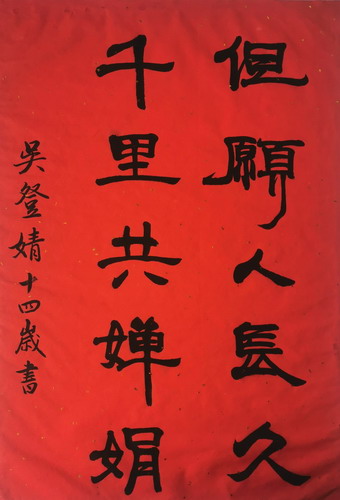 但願人長久
千里共嬋娟
吳登婧十四歲書